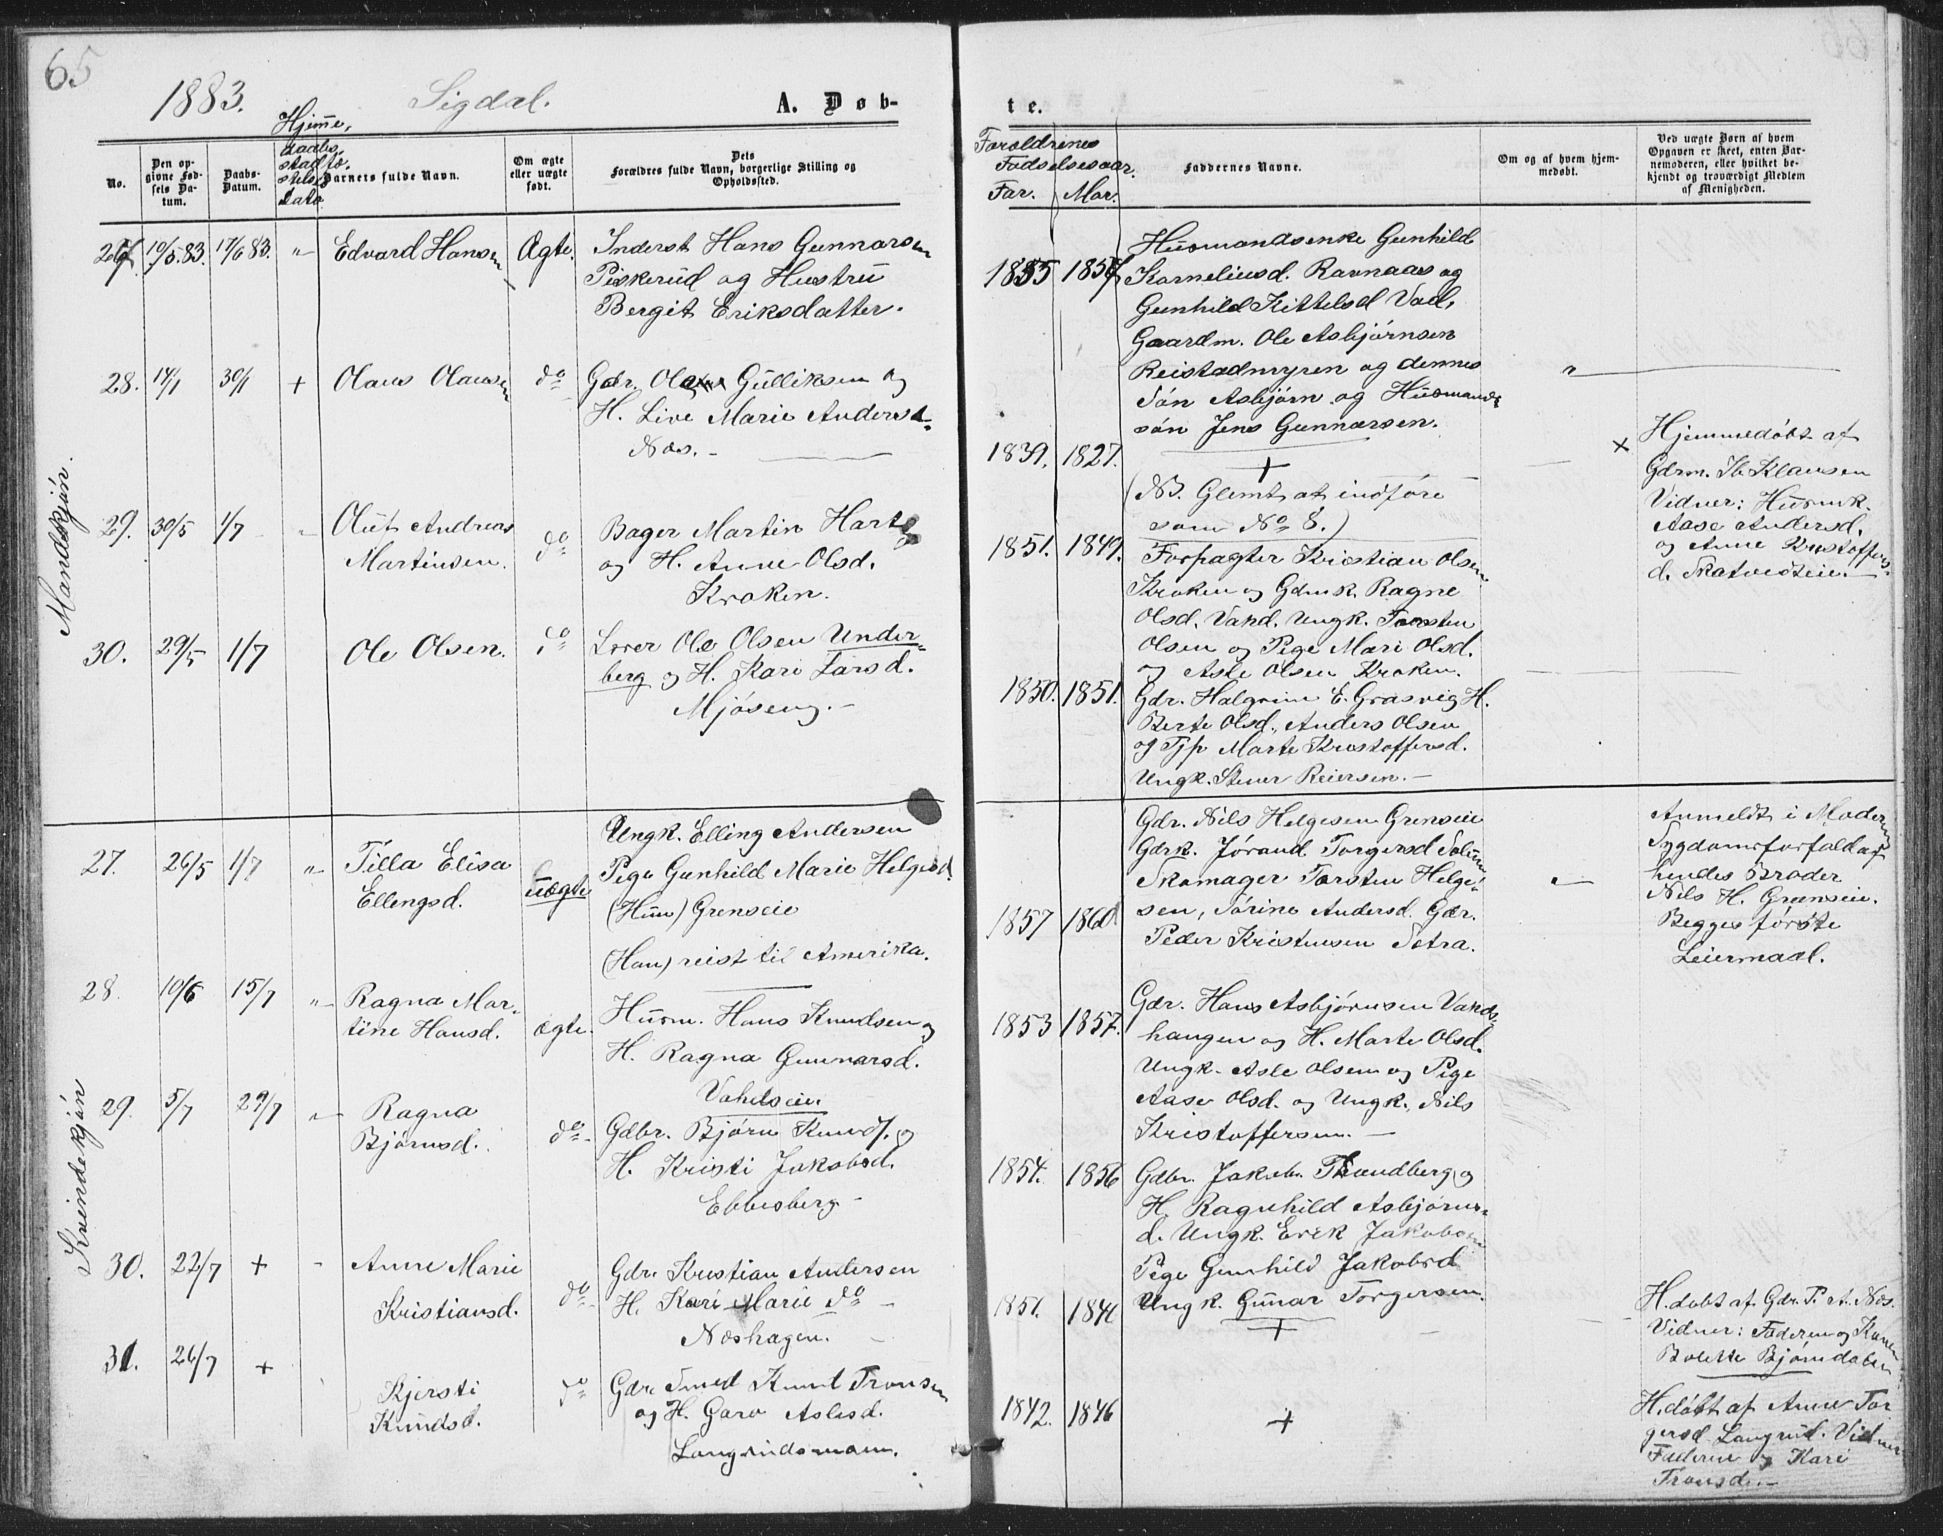 65
1883. Sigdal. A. Døb-
No.
Den op-
givne Fød-
sels Da-
tum.
Daabs-
Datum.
Hjemme,
daabs.
stadfæ
stelses
dato
Barnets fulde Navn.
Om ægte
eller uægte
født.
Dets
Forældres fulde Navn, borgerlige Stilling og
Opholdssted.
Mandskjøn.
27. 10/5.83. 17/6 83. " Edvard Hansen Ægte. Inderst Hans Gunnarsen
Piskerud og Hustru
Bergit Eriksdatter.
28. 14/1 30/1 + Olaus Olausen do Gdr. Gulliksen og
H. Live Marie Andersd.
Næs.
29. 30/5 1/7 " Oluf Andreas
Martinsen. do Bager Martin
og H. Anne Olsd.
Kroken.
30. 29/5 1/7 Ole Olsen. do Ole Olsen Under-
berg og H. Kari Larsd.
Mjøseng.
Kvindekjøn
27. 26/5 1/7 " Tilla Elisa
Ellengsd. uægte Ungk. Elling Andersen
Pige Gunhild Marie Helgesd.
(Hun) Grenseie
(Han) reist til Amerika.
28. 10/6 15/7 " Ragna Mar-
tine Hansd. ægte. Husm. Hans Knudsen og
H. Ragna Gunnarsd.
29. 5/7 29/7 " Ragna
Bjørnsd. do Gdbr. Bjørn Knuds. og
H. Kristi Jakobsd.
Ebbesberg
30. 22/7 + Anne Marie
Kristiansd. do Gdr. Kristian Andersen
H. Kari Marie do
Næshagen.
31. 26/7 + Kjersti
Knudsd. do Gdr. Smed Knud Tronsen
og H. Garo Aslesd.
te.
Foreldrenes
Fødselsaar.
Far. Mor.
Faddernes Navne.
Om og af hvem hjem-
medøbt.
Ved uægte Børn af hvem
Opgaven er skeet, enten Bar-
nemoderen, eller hvilket be-
kjendt og troværdigt Medlem
af Menigheden.
1855 1857 Husmandsenke Gunhild
Korneliusd. Ravnaas og
Gunhild Kittelsd
Gaardm. Ole Asbjørnsen
Reistadmyren og dennes
Søn Asbjørn og Husmands
søn Jens Gunnarsen.
1839. 1827. +
(NB. Glemt at indføre
som No 8.)
× Hjemmedøbt af
Gdrm. Ib Klausen
Vidner: Husmk.
Aase Andersd.
og Anne Kristoffers-
d. Skatvedteie.
1851. 1849. Forpagter Kristian Olsen
Kroken og Gdmk. Ragne
Olsd. Vand. Ungk. Torsten
Olsen og Pige Mari Olsd.
og Asle Olsen Kroken.
1850. 1851. Gdr. Halgrim E. Græsvig H.
Berte Olsd., Anders Olsen
og Tjp Marte Kristoffersd.
Ungk. Stener Reiersen.
1857 1860 Gdr. Nils Helgesen Grenseie
Gdrk. Jørand Torgersd
Skomager Torsten Helge-
sen, Sørine Andersd. Gdr.
Peder Kristensen Setra.
Anmeldt i Moderens
Sygdomsforfald af
hendes Broder
Nils H. Grenseie.
Begges første
Leiermaal.
1853 1857. Gdr. Hans Asbjørnsen Vands-
hangen og H. Marte Olsd.
Ungk. Asle Olsen og Pige
Aase Olsd. og Ungk. Nils
Kristoffersen.
1854. 1856 Gdbr. Jakob. og
H. Ragnhild Asbjørns-
d. Ungk. Erik Jakobsen
Pige Gunhild Jakobsd
Ungk. Gunar Torgersen.
1851. +
H. døbt af Gdr. P. A. Næs.
Vidner: Faderen og Karen
Bolette Bjørndalen
1842. 1846 +
H. døbt af Anne Tor
gersd Langrud. Vidner
Faderen og Kari
Tronsd.